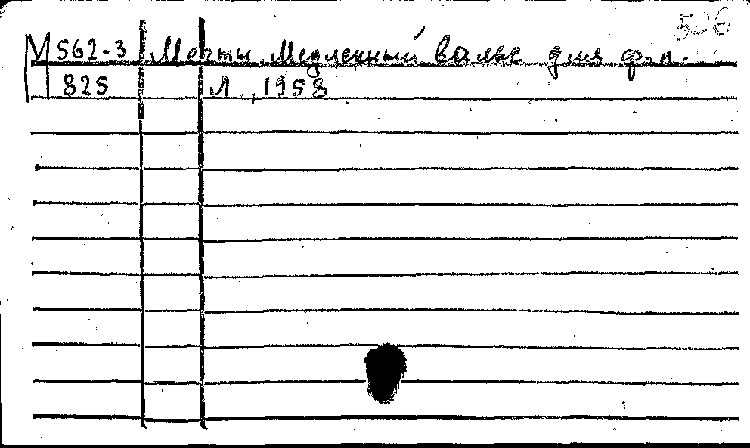 526
М 562-3 Мечты. Медленный вальс для ф.п.
825 Л., 1958